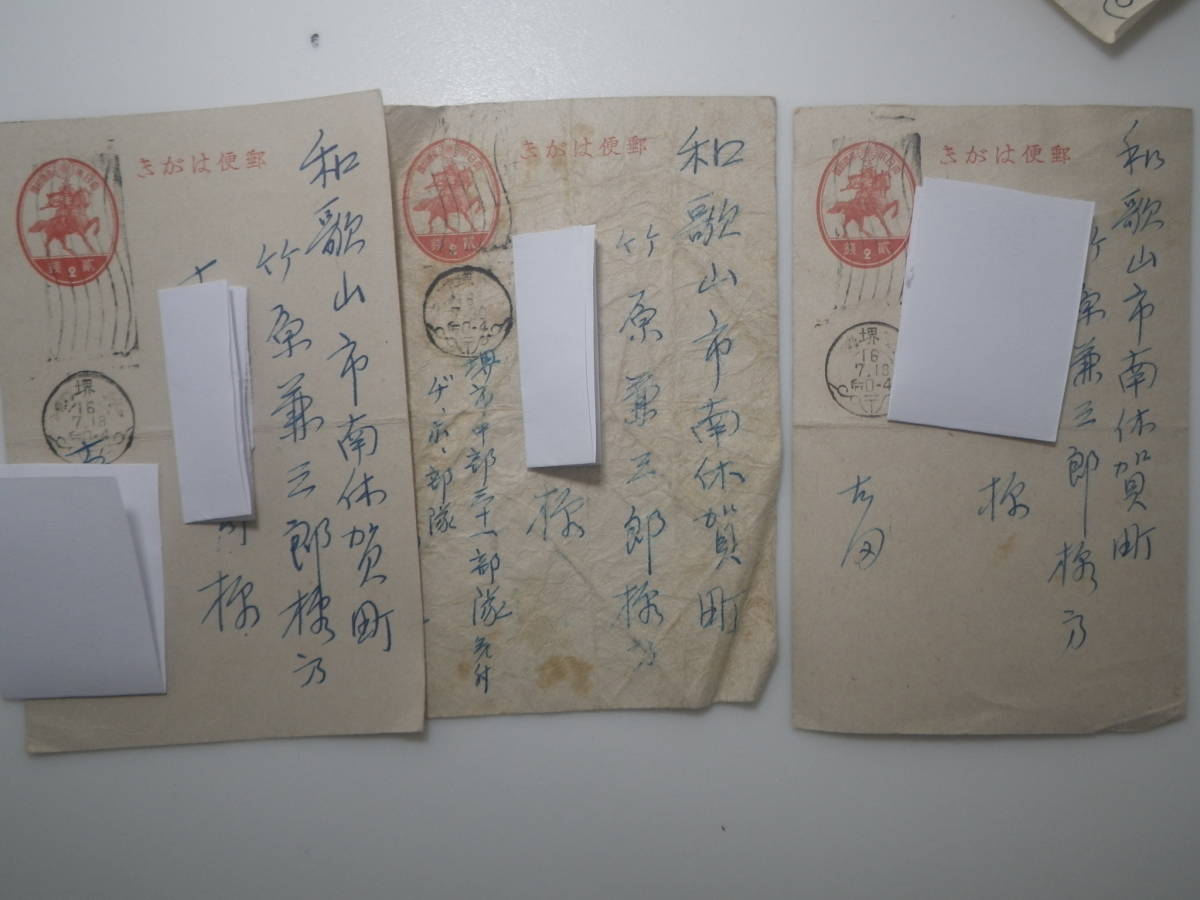 きがは便郵
貳2錢
堺
16
7.18
和歌山市南休賀町
竹原兼三郎様方
様
きがは便郵
貳2錢
堺
和歌山市南休賀町
竹原兼三郎様方
様
堺市中部三十一部隊気付
部隊
きがは便郵
貳2錢
堺
16
7.18
后0-4
和歌山市南休賀町
竹原兼三郎様方
様
吉田